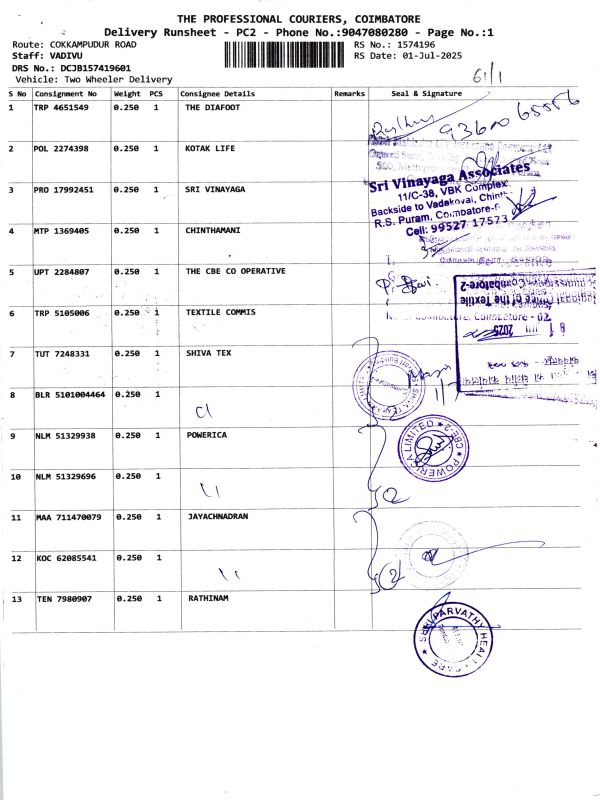 THE PROFESSIONAL COURIERS, COIMBATORE
Delivery Runsheet - PC2 - Phone No.:9047080280 - Page No.:1
Route: COKKAMPUDUR ROAD
RS No.: 1574196
Staff: VADIVU
RS Date: 01-Jul-2025
DRS No.: DCJB157419601
Vehicle: Two Wheeler Delivery
61/1
S No Consignment No Weight PCS Consignee Details Remarks Seal & Signature
1 TRP 4651549 0.250 1 THE DIAFOOT
2 POL 2274398 0.250 1 KOTAK LIFE
3 PRO 17992451 0.250 1 SRI VINAYAGA
Sri Vinayaga Associates
11/C-38, VBK Complex
Backside to Vadakovai,
R.S. Puram, Coimbatore-
Cell: 99527 17573
4 MTP 1369405 0.250 1 CHINTHAMANI
5 UPT 2284807 0.250 1 THE CBE CO OPERATIVE
P. Devi
Regional Office of the Textile
Coimbatore-2
2025
6 TRP 5105006 0.250 1 TEXTILE COMMIS
7 TUT 7248331 0.250 1 SHIVA TEX
8 BLR 5101004464 0.250 1
9 NLM 51329938 0.250 1 POWERICA
POWERICA LIMITED ★ CBE-2 ★
10 NLM 51329696 0.250 1
11 MAA 711470079 0.250 1 JAYACHNADRAN
12 KOC 62085541 0.250 1
13 TEN 7980907 0.250 1 RATHINAM
SRI PARVATHY HEALTH CARE ★